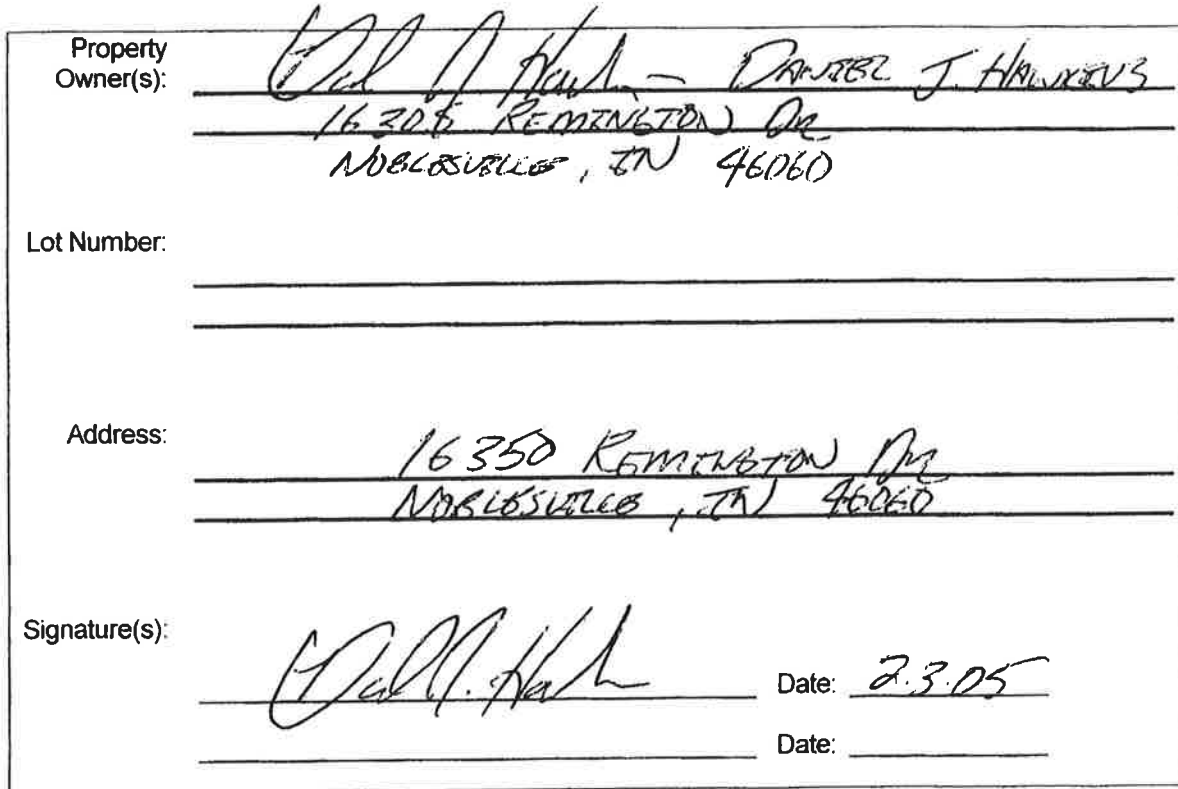 Property
Owner(s): DANIEL J. HAWKINS
REMINGTON DR
NOBLESVILLE, IN 46060
Lot Number:
Address: 16350 REMINGTON DR
NOBLESVILLE, IN 46060
Signature(s): Date: 2.3.05
Date: